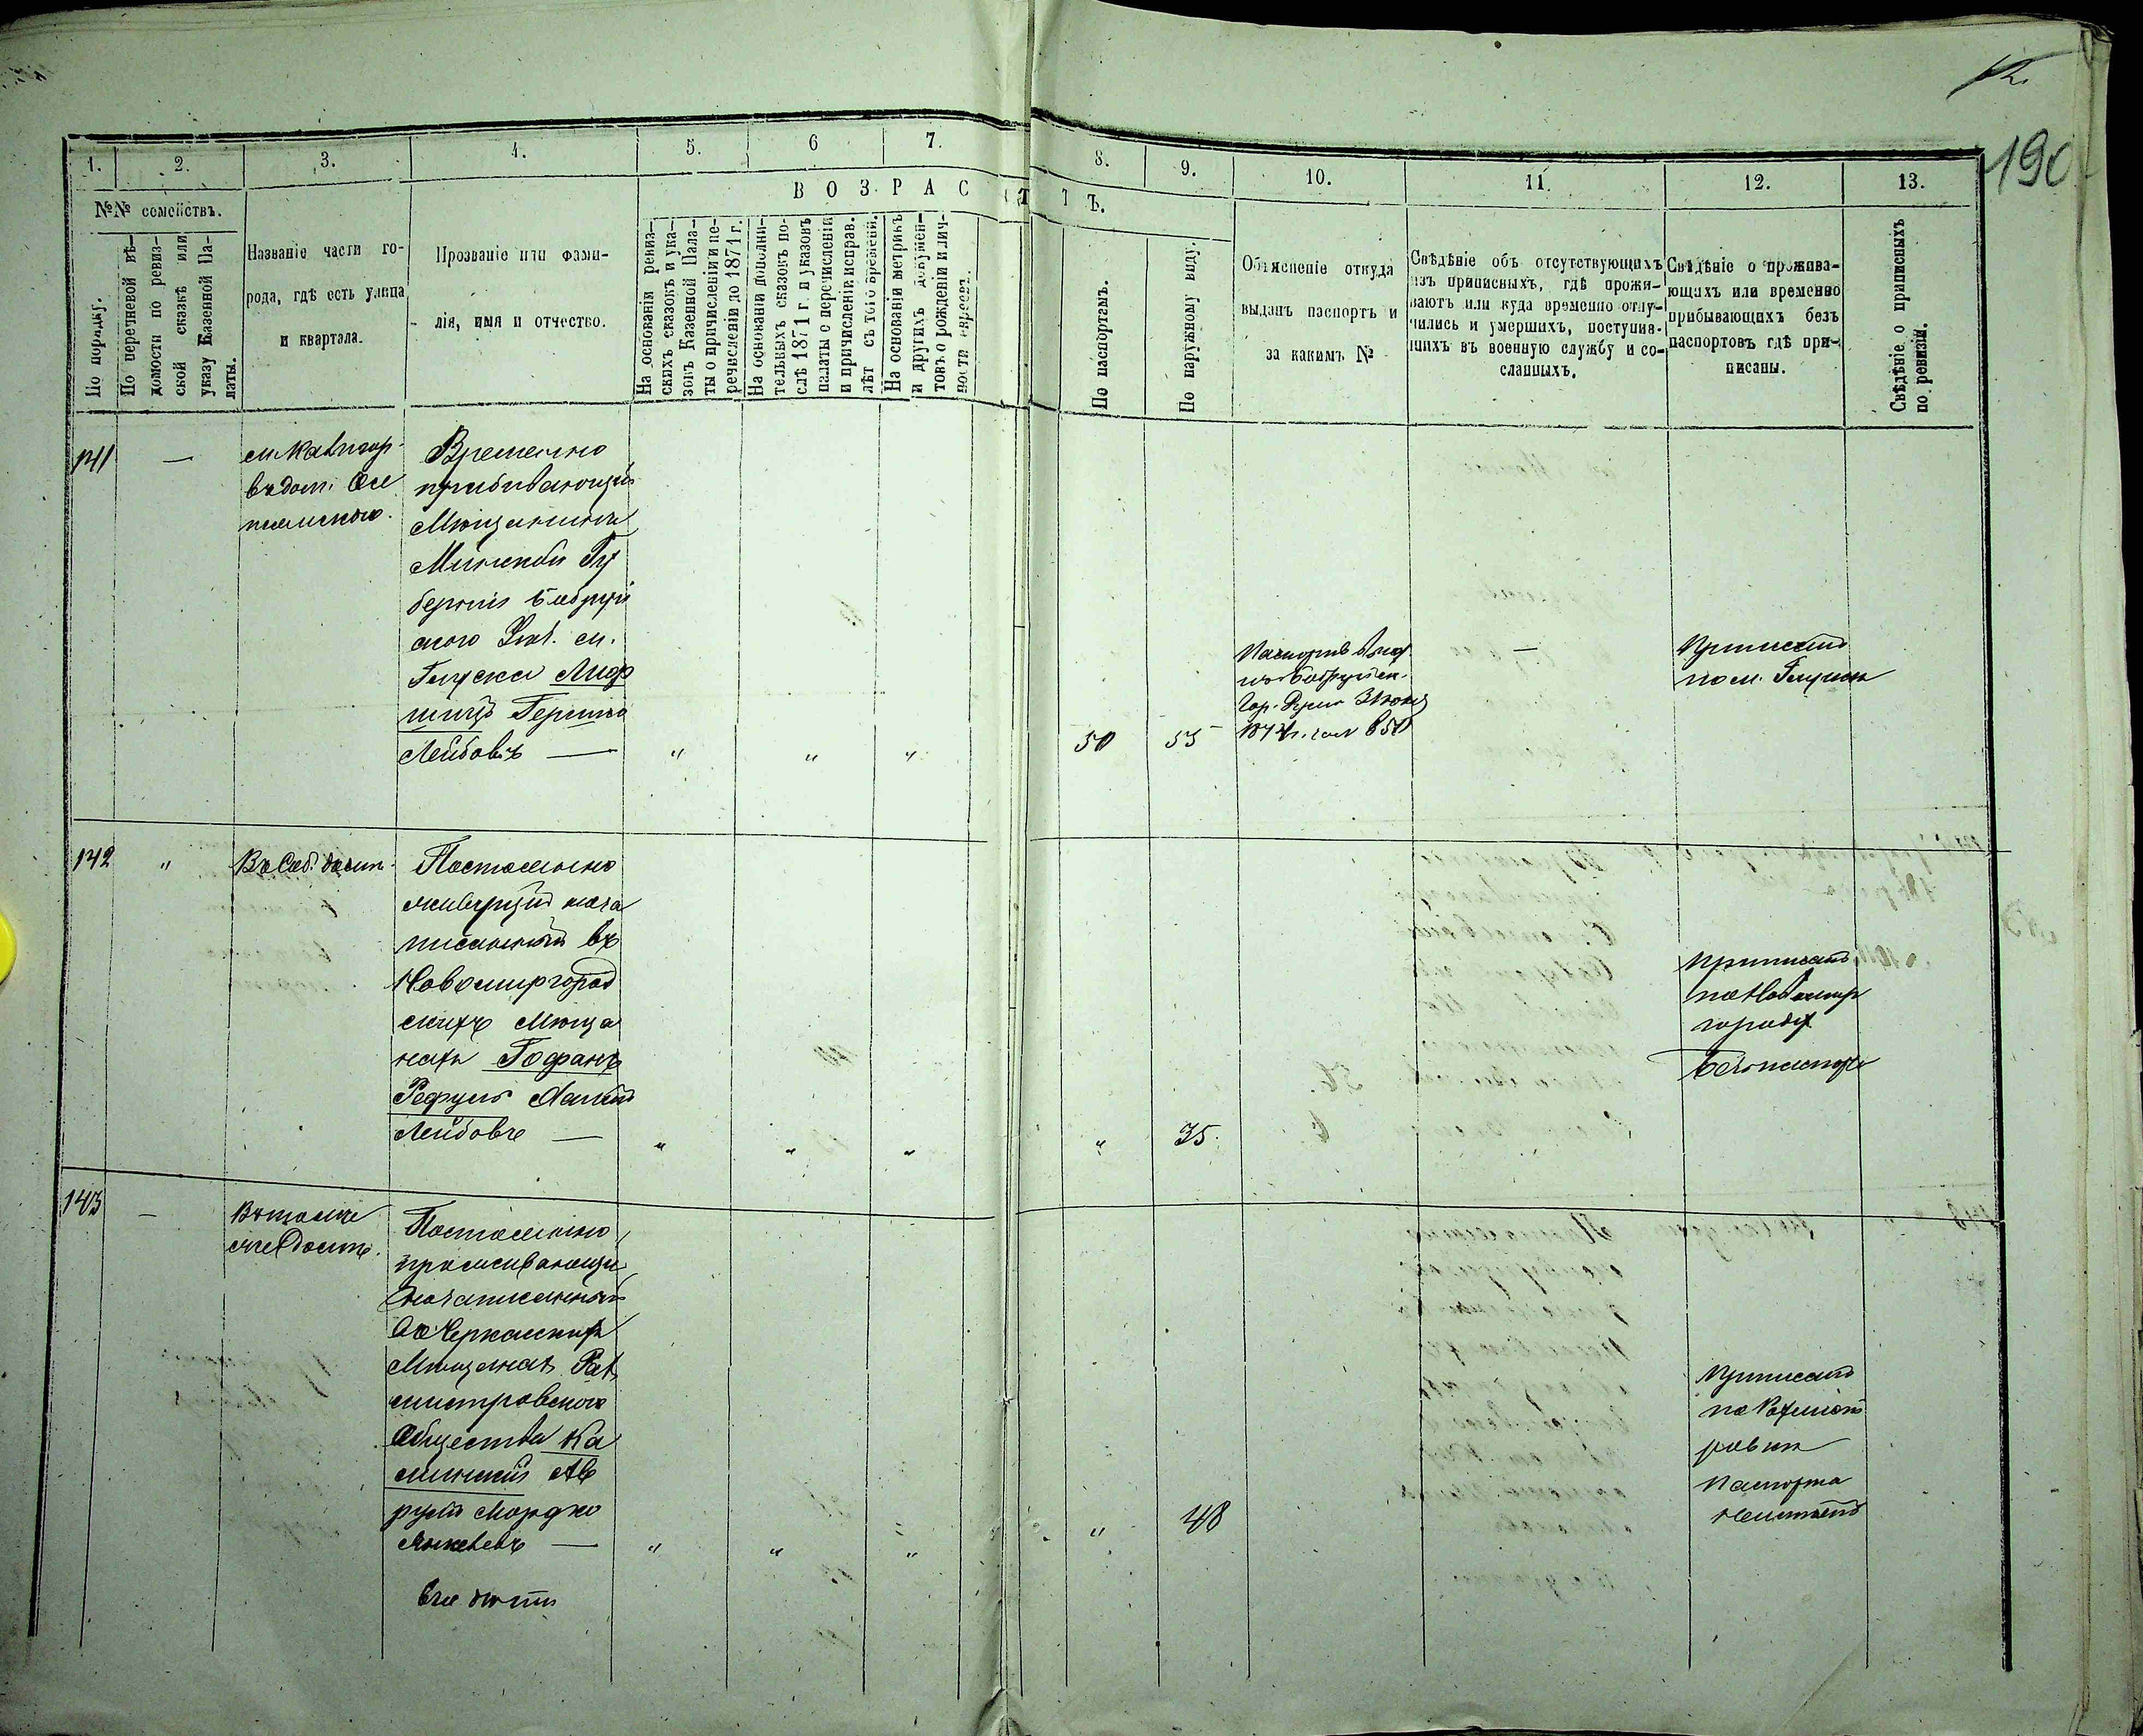 190
1.
2.
3.
4.
5.
6
7.
8.
9.
10.
11.
12.
13.
№№ семействъ.
ВОЗРАСТЪ.
По порядку.
По перечневой вѣ-
домости по ревиз-
ской сказкѣ или
указу Казенной Па-
латы.
Названіе части го-
рода, гдѣ есть улица
и квартала.
Прозваніе или фами-
лія, имя и отчество.
На основаніи ревиз-
скихъ сказокъ и ука-
зовъ Казенной Пала-
ты о причисленіи и пе-
речисленіи до 1871 г.
На основаніи дополни-
тельныхъ сказокъ по-
слѣ 1871 г. и указовъ
палаты с перечисленіи
и причисленіи исправ.
лѣт съ того времени.
На основаніи метрикъ
и другихъ докумен-
товъ о рожденіи и лич-
ности евреевъ.
По паспортамъ.
По наружному виду.
Объясненіе откуда
выданъ паспортъ и
за какимъ №
Свѣдѣніе объ отсутствующихъ
изъ приписныхъ, гдѣ прожи-
ваютъ или куда временно отлу-
чились и умершихъ, поступив-
шихъ въ военную службу и со-
сланныхъ.
Свѣдѣніе о прожива-
ющихъ или временно
прибывающихъ безъ
паспортовъ гдѣ при-
писаны.
Свѣдѣніе о приписныхъ
по ревизіи.
141
—
въ дом.
Временно
прибивающій
Мющанинъ
Минской Гу
берніи Бобруй
ского м.
Глуска Лиф
шицъ Гершко
Лейбовъ —
"
"
"
50
55
Гор. Думи
—
Приписанъ
по м. Глускъ
142
"
Въ Соб. домѣ
Постоянно
живущій неза
писанный въ
Новомиргород
скихъ Мюща
нахъ Гофанъ
Лейбовъ —
"
"
"
"
35
Приписанъ
по Новомир
городу
143
—
Въ томъ
же домѣ.
Постоянно
проживающій
незаписанный
Черкаскихъ
Мющанахъ Рат
мистровскаго
Общества Ка
минскій Ав
румъ Мордко
Янкелевъ —
"
"
"
"
48
Приписанъ
по Ротмист
ровки
Паспорта
неимѣетъ
Его дѣти